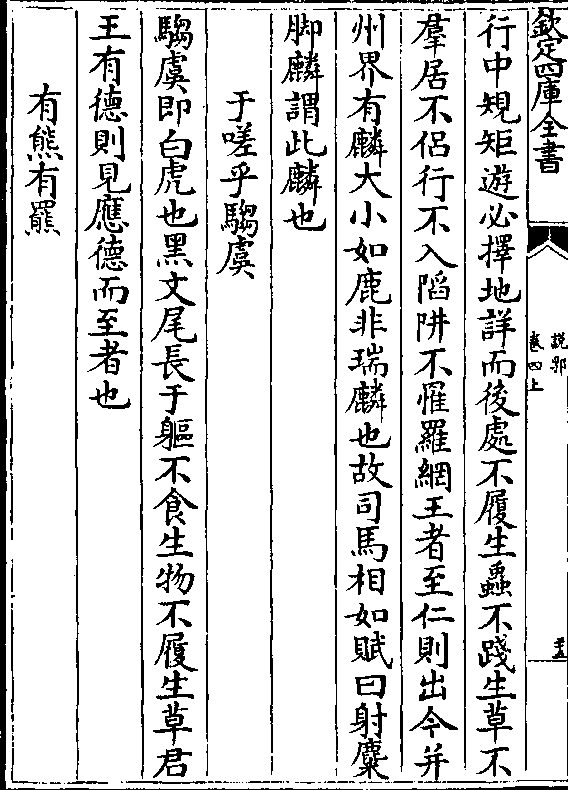 欽定四庫全書
說郛
卷四上
五
行中規矩遊必擇地詳而後處不履生蟲不踐生草不
羣居不侣行不入陷阱不罹羅網王者至仁則出今并
州界有麟大小如鹿非瑞麟也故司馬相如賦曰射麋
脚麟謂此麟也
于嗟乎騶虞
騶虞即白虎也黑文尾長于軀不食生物不履生草君
王有德則見應德而至者也
有熊有羆